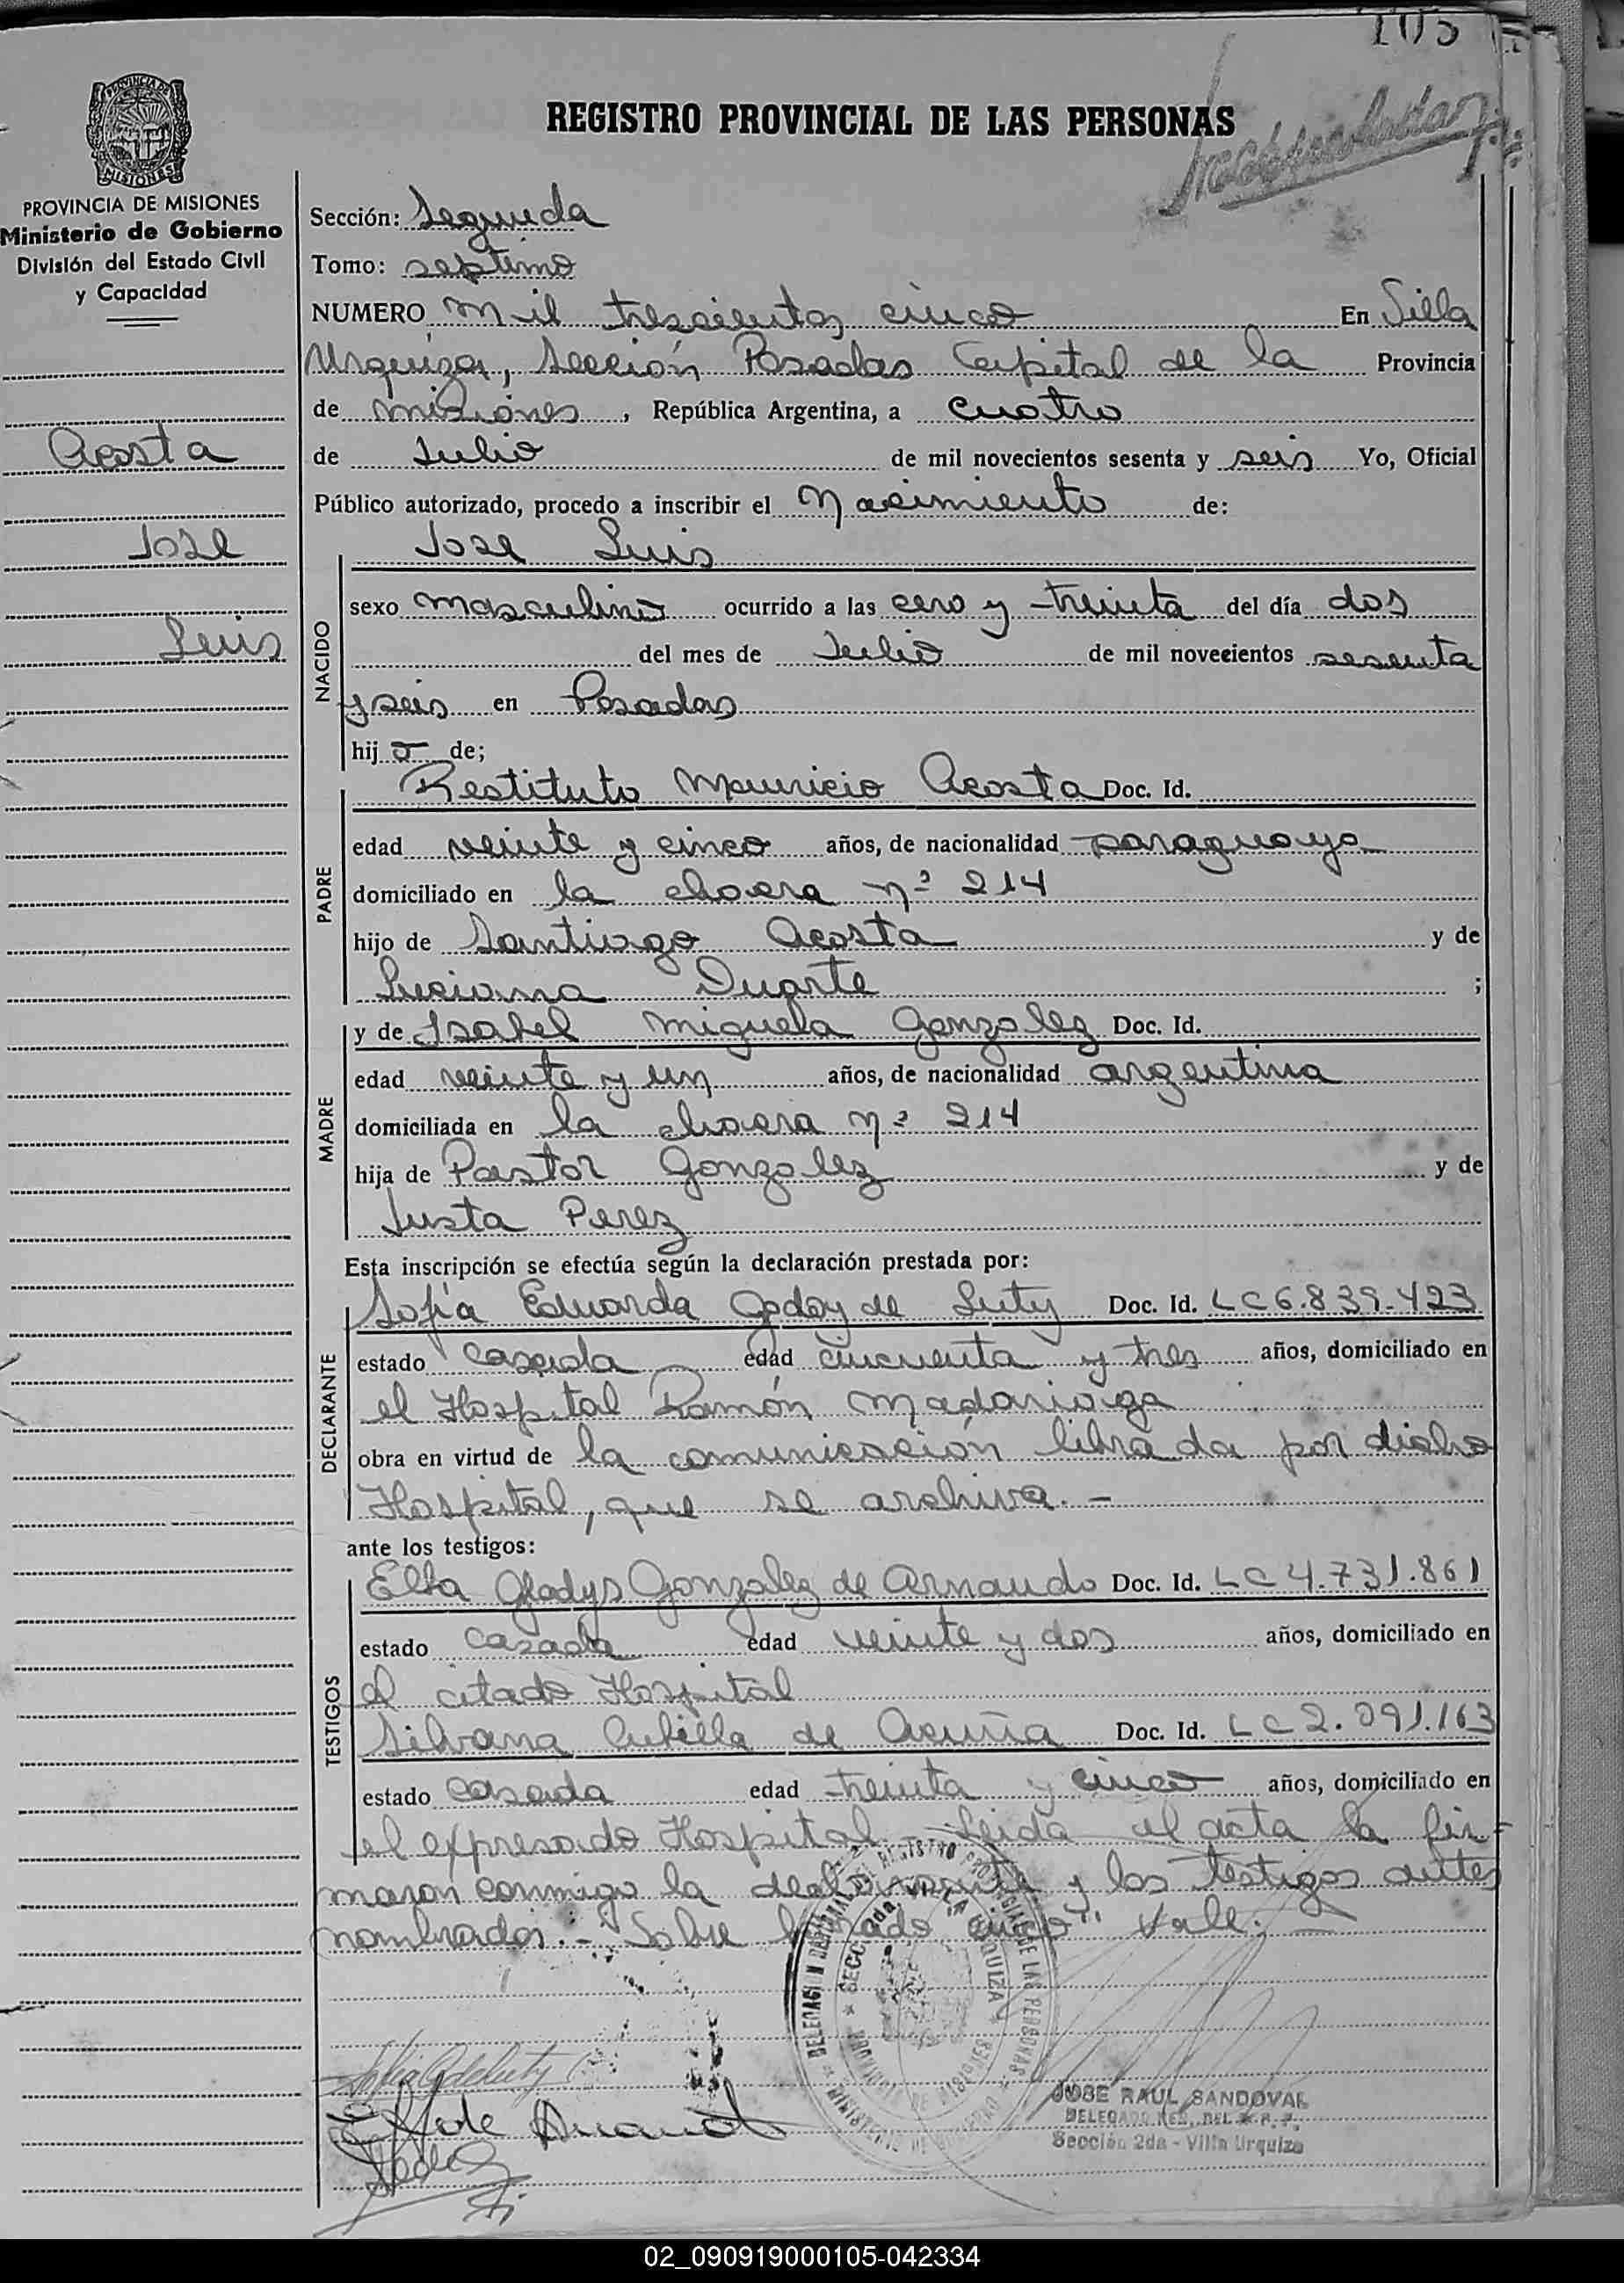 105
REGISTRO PROVINCIAL DE LAS PERSONAS
PROVINCIA DE MISIONES
Ministerio de Gobierno
División del Estado Civil
y Capacidad
Acosta
Jose
Luis
Sección: Segunda
Tomo: septimo
NUMERO mil trescientos cinco En Villa
Urquiza, Sección Posadas Capital de la Provincia
de misiones, República Argentina, a cuatro
de Julio de mil novecientos sesenta y seis Yo, Oficial
Público autorizado, procedo a inscribir el Nacimiento de:
NACIDO
Jose Luis
sexo masculino ocurrido a las cero y treinta del día dos
del mes de Julio de mil novecientos sesenta
y seis en Posadas
hijo de;
PADRE
Restituto Mauricio Acosta Doc. Id.
edad veinte y cinco años, de nacionalidad paraguaya
domiciliado en la chacra nº 214
hijo de Santiago Acosta y de
Luciana Duarte ;
MADRE
y de Isabel Miguela Gonzalez Doc. Id.
edad veinte y un años, de nacionalidad argentina
domiciliada en la chacra nº 214
hija de Pastor Gonzalez y de
Justa Perez
Esta inscripción se efectúa según la declaración prestada por:
DECLARANTE
Sofía Eduarda Godoy de Luty Doc. Id. LC 6.839.423
estado casada edad cincuenta y tres años, domiciliado en
el Hospital Ramón Madariaga
obra en virtud de la comunicación librada por dicho
Hospital, que se archiva.-
ante los testigos:
TESTIGOS
Elba Gladys Gonzalez de Arnaudo Doc. Id. LC 4.731.861
estado casada edad veinte y dos años, domiciliado en
el citado Hospital
Silvana Cubilla de Acuña Doc. Id. LC 2.091.163
estado casada edad treinta y cinco años, domiciliado en
el expresado Hospital. Leida el acta la fir-
maron conmigo la declarante y los testigos antes
nombrados.- Sobre borrado "cinco" Vale.-
JOSE RAUL SANDOVAL
DELEGADO
Sección 2da - Villa Urquiza
02_090919000105-042334